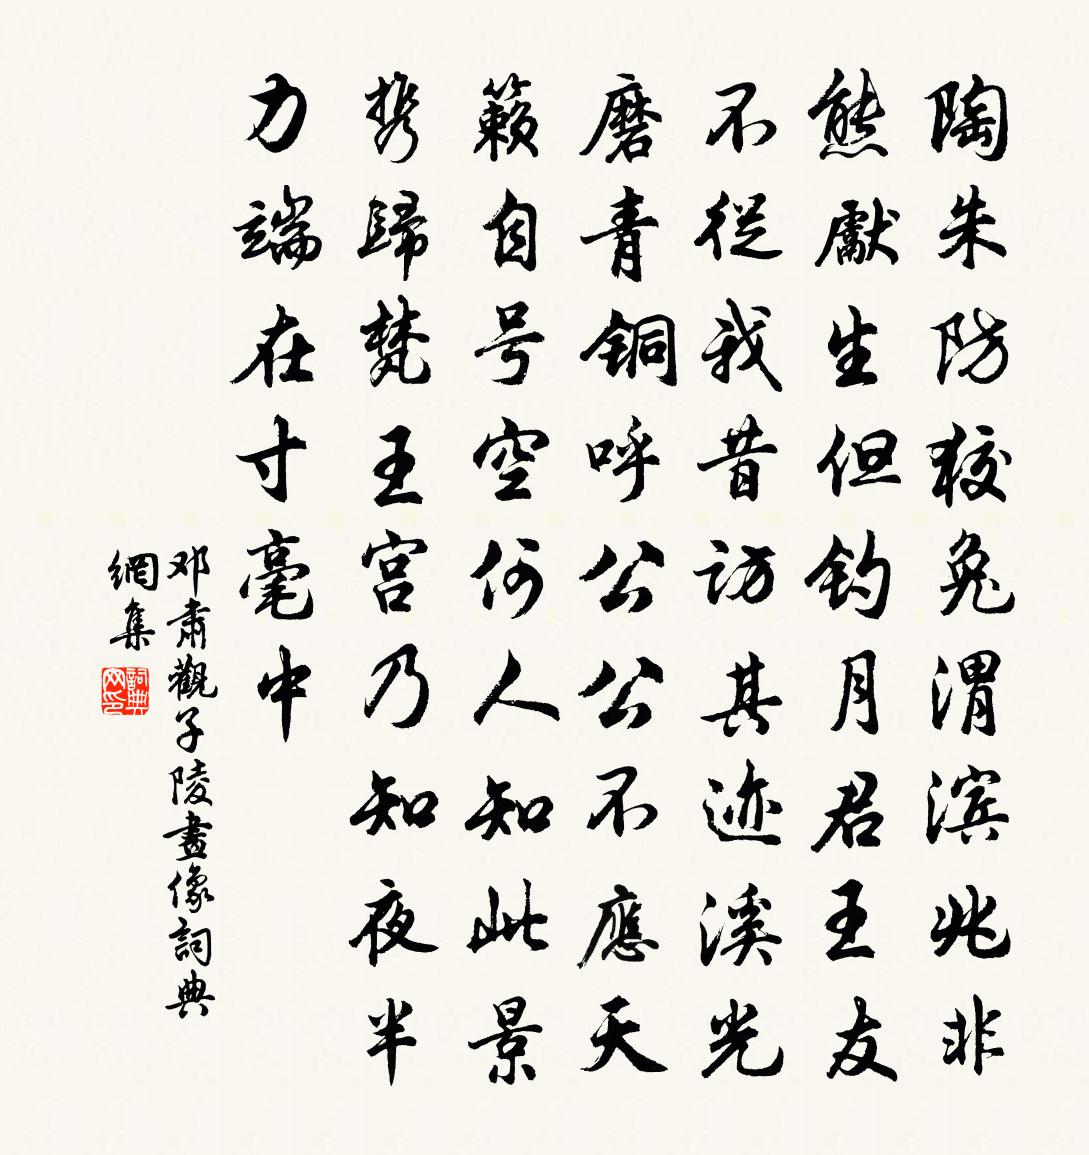 陶朱防狡兔渭滨兆非
熊献生但钓月君王友
不從我昔访其迹溪光
磨青铜呼公公不應天
籟自号空何人知此景
携歸梵王宫乃知夜半
力端在寸毫中
邓肃觀子陵畫像詞典
網集
詞典網印